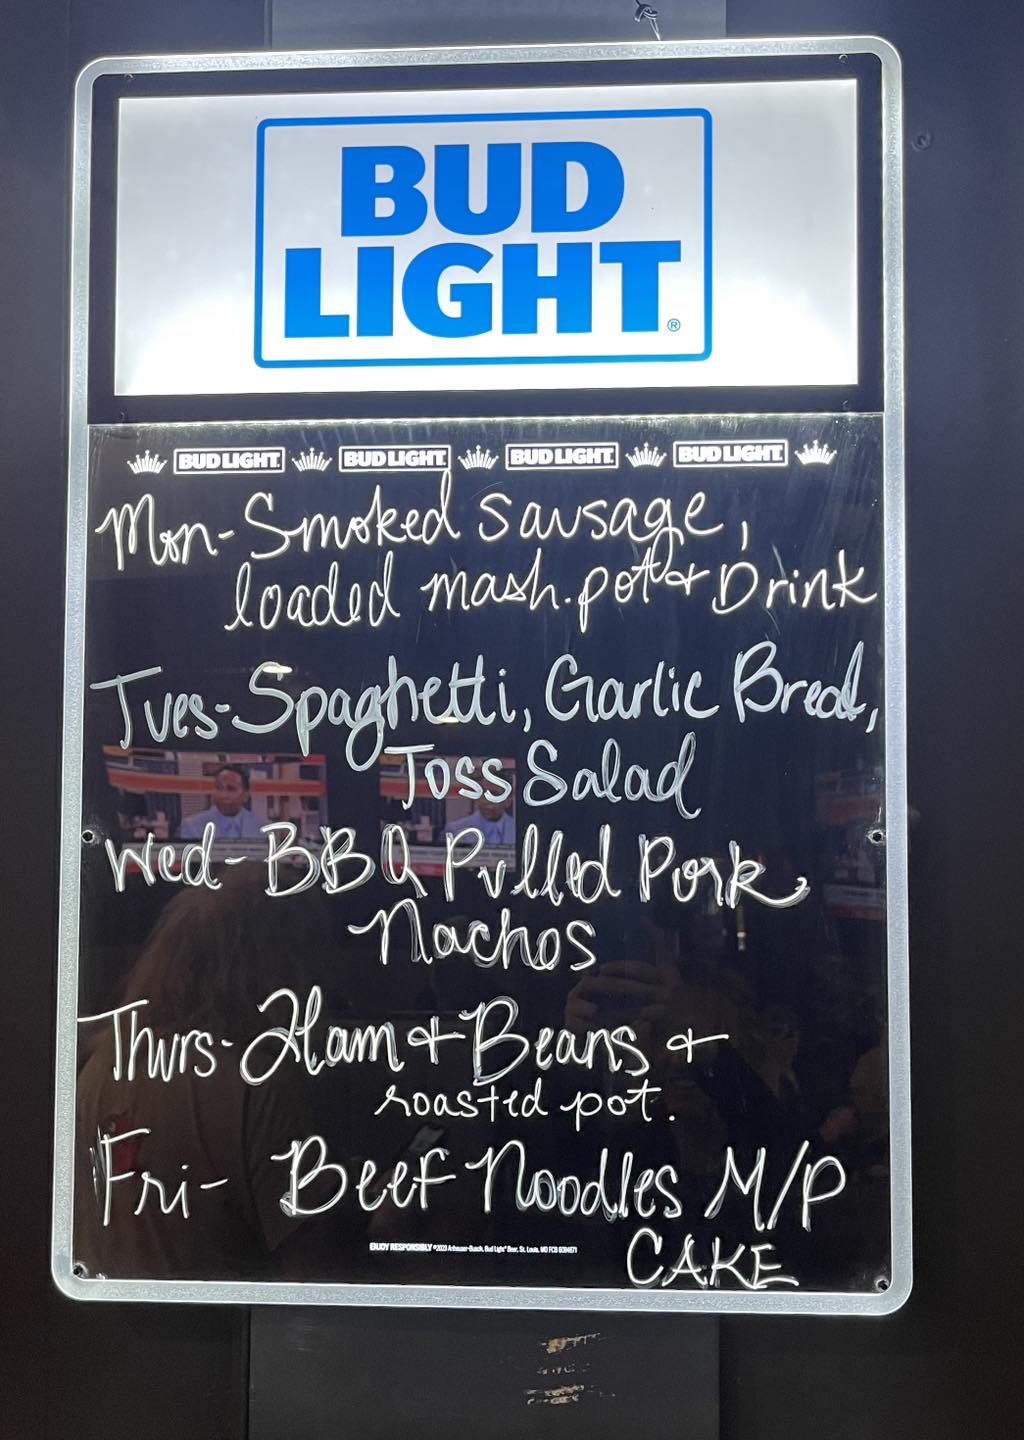 BUD
LIGHT®
BUD LIGHT. BUD LIGHT. BUD LIGHT. BUD LIGHT.
Mon-Smoked Sausage,
loaded mash.pot + Drink
Tues-Spaghetti, Garlic Bread,
Toss Salad
Wed-BBQ Pulled Pork,
Nachos
Thurs-Ham + Beans +
roasted pot.
Fri- Beef Noodles M/P
CAKE
ENJOY RESPONSIBLY ©2023 Anheuser-Busch, Bud Light® Beer, St. Louis, MO